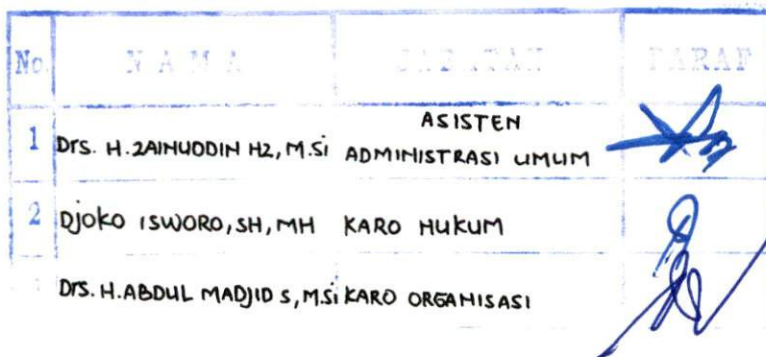 No. NAMA JABATAN PARAF
ASISTEN
1 Drs. H. ZAINUDDIN HZ, M.Si ADMINISTRASI UMUM
2 Djoko ISWORO, SH, MH KARO HUKUM
Drs. H. ABDUL MADJID S, M.Si KARO ORGANISASI